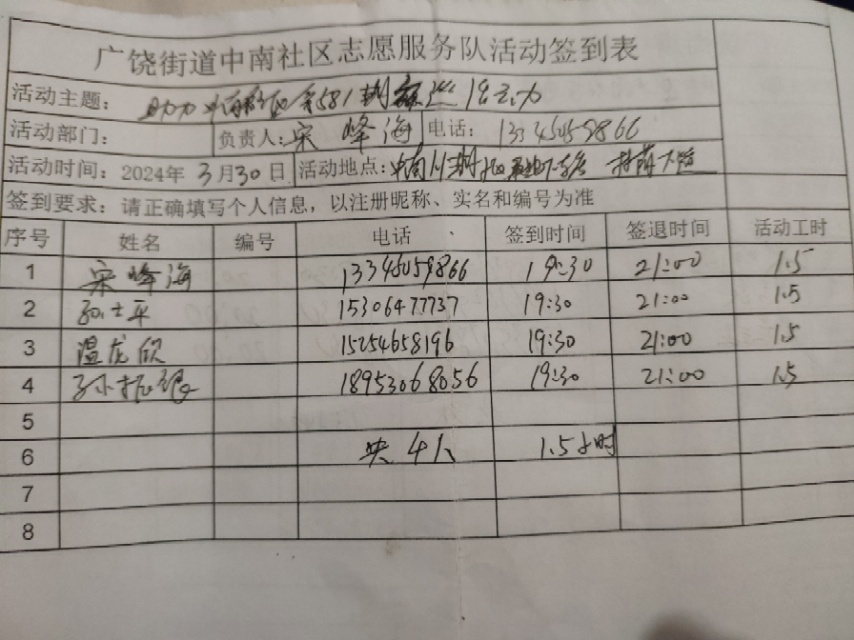 广饶街道中南社区志愿服务队活动签到表
活动主题： 助力
活动部门： 负责人：宋峰海 电话：13345059866
活动时间：2024年3月30日 活动地点：中南
签到要求：请正确填写个人信息，以注册昵称、实名和编号为准
序号 姓名 编号 电话 签到时间 签退时间 活动工时
1 宋峰海 13345059866 19:30 21:00 1.5
2 士平 15306477737 19:30 21:00 1.5
3 温龙欣 15254658196 19:30 21:00 1.5
4 孙振 18953068056 19:30 21:00 1.5
5
6 共4人 1.5小时
7
8